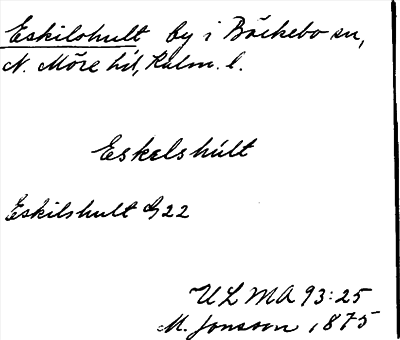 Eskilshult by i Bäckebo sn,
N. Möre hd, Kalm. l.
Eskelshúlt
Eskilshult G22
ULMA 93:25
M. Jonsson, 1875